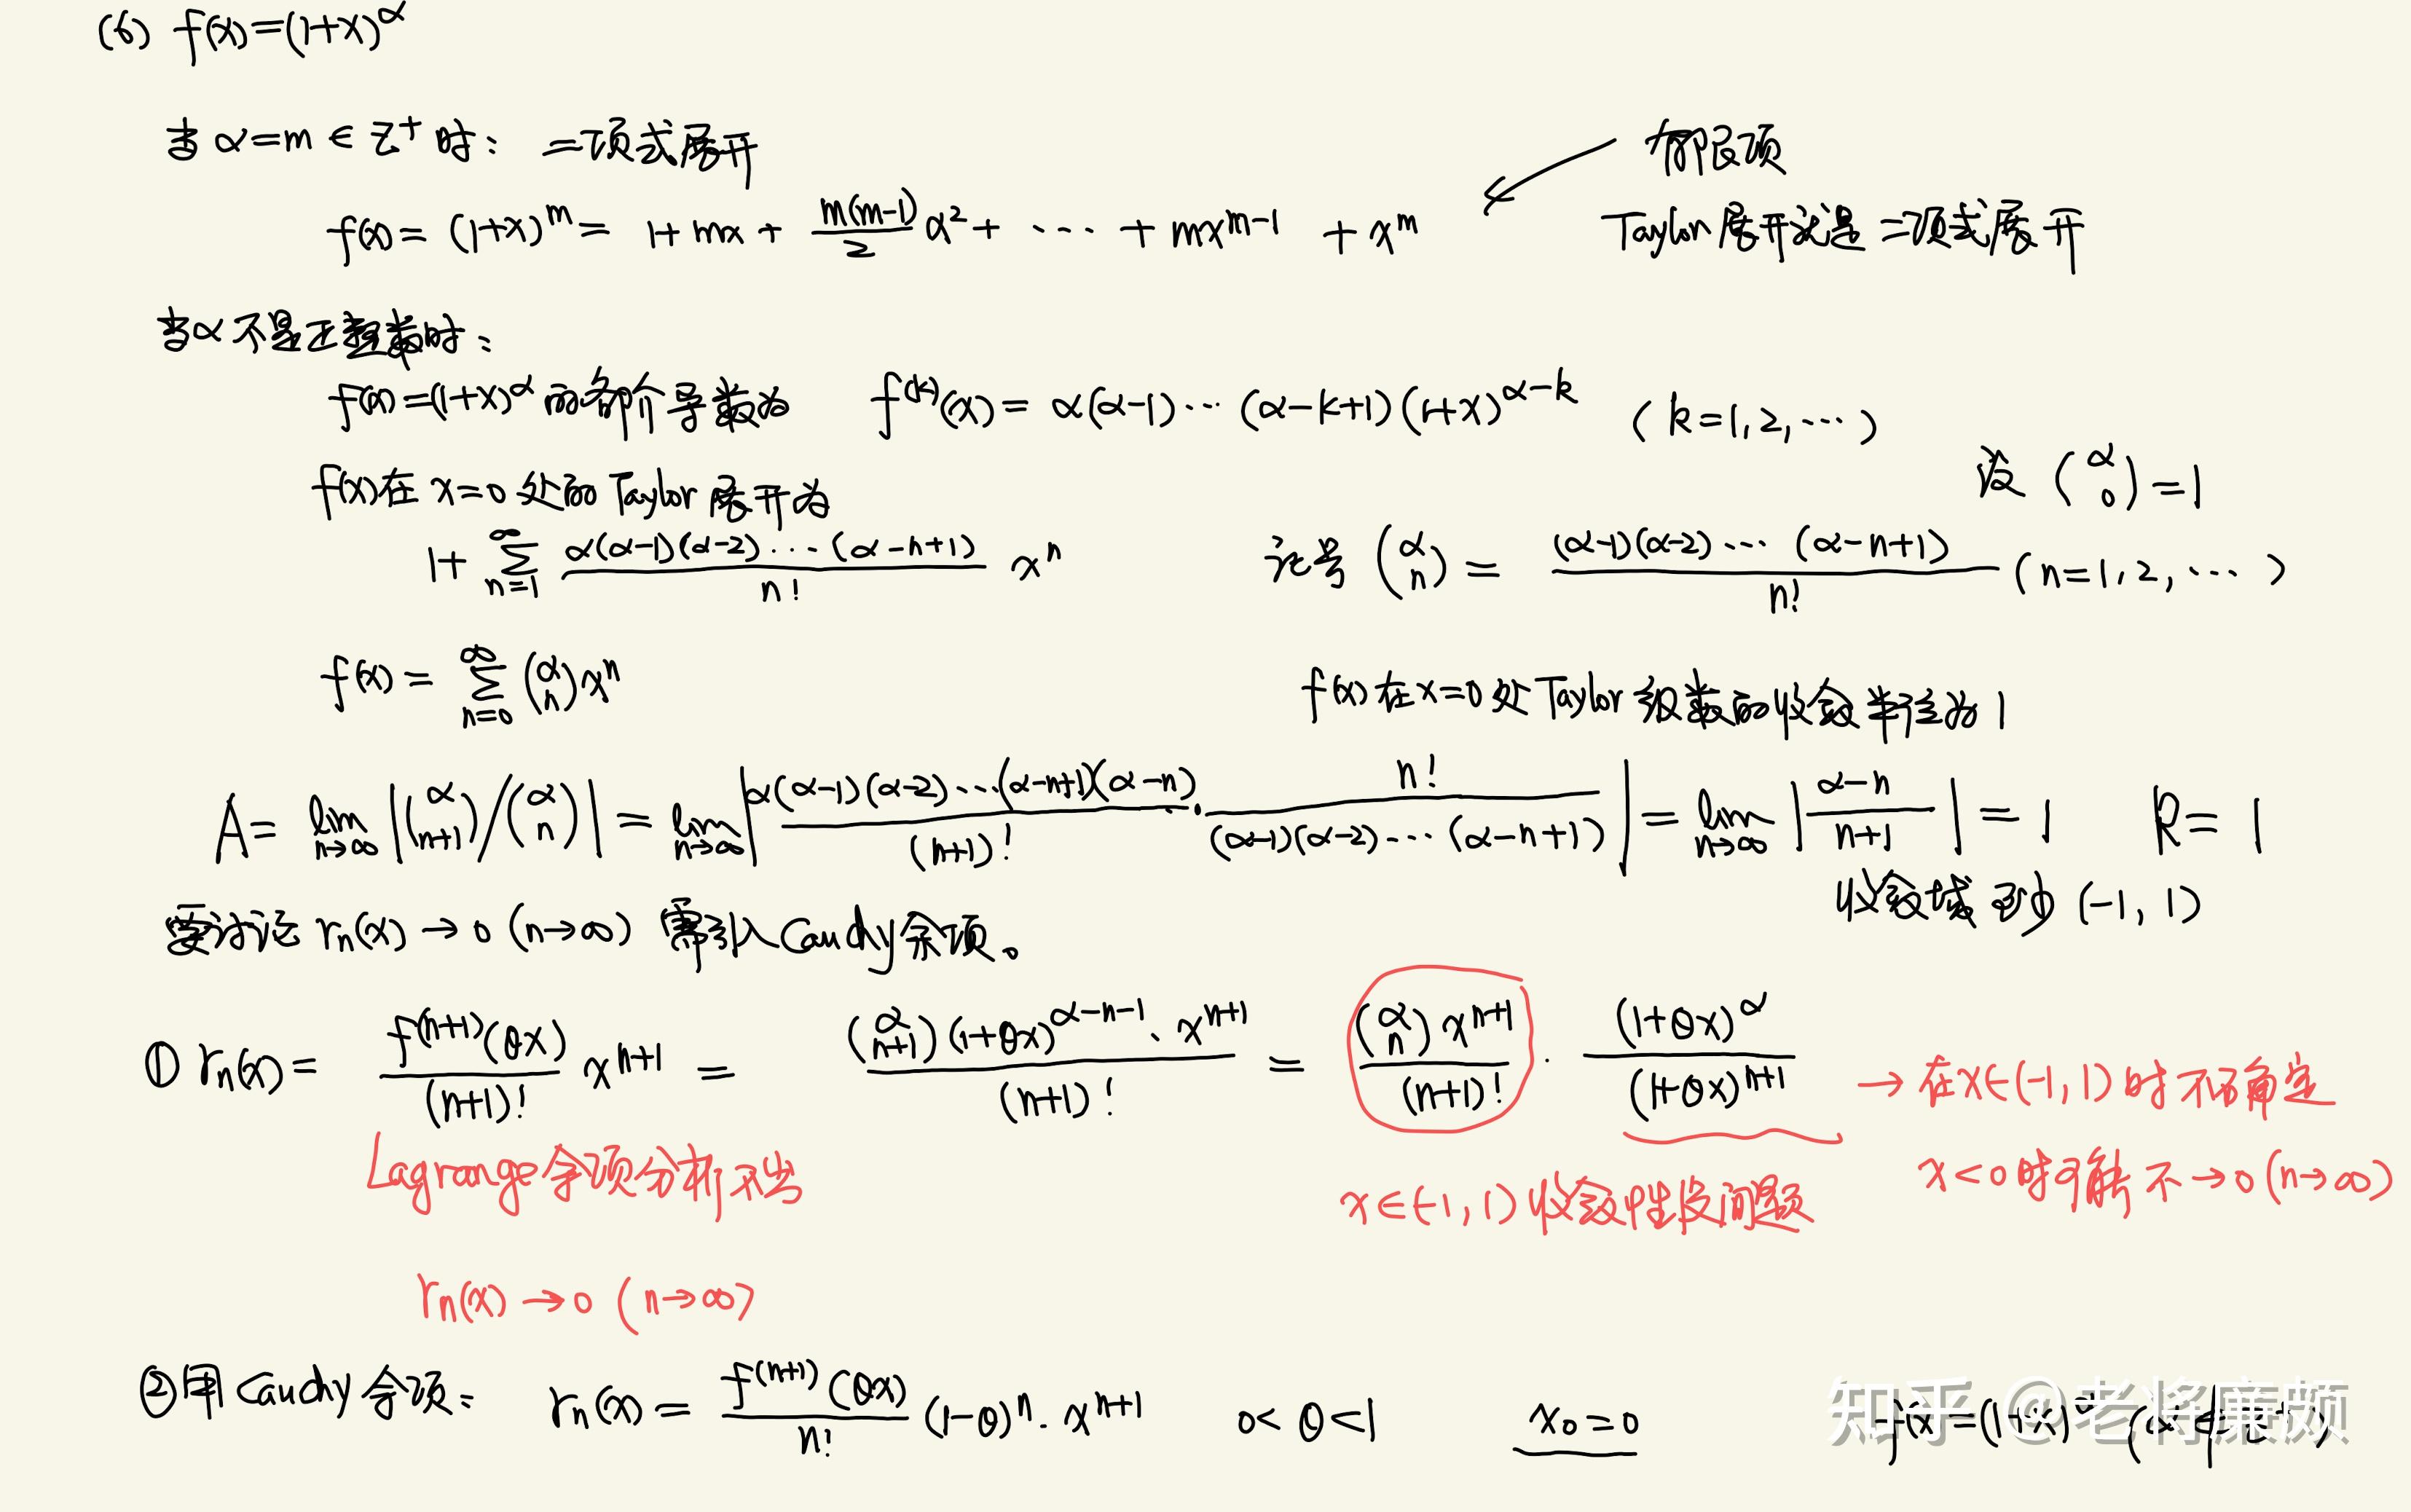 (6) f(x)=(1+x)^α
当 α=m ∈ Z⁺ 时： 二项式展开
有限项
f(x) = (1+x)^m = 1+mx+ \frac{m(m-1)}{2} α² + ⋯ + mx^{m-1} + x^m
Taylor 展开就是二项式展开
当α不是正整数时：
f(x)=(1+x)^α 的各阶导数为 f^{(k)}(x) = α(α-1)⋯(α-k+1)(1+x)^{α-k} (k=1,2,⋯)
f(x)在 x=0 处的 Taylor 展开为
设 \binom{α}{0}=1
1+ \sum_{n=1}^{∞} \frac{α(α-1)(α-2)⋯(α-n+1)}{n!} x^n
记号 \binom{α}{n} = \frac{(α-1)(α-2)⋯(α-n+1)}{n!} (n=1,2,⋯)
f(x) = \sum_{n=0}^{∞} \binom{α}{n} x^n
f(x)在x=0处Taylor级数的收敛半径为1
A= \lim_{n→∞} |\binom{α}{n+1}/\binom{α}{n}| = \lim_{n→∞} |\frac{α(α-1)(α-2)⋯(α-n+1)(α-n)}{(n+1)!} · \frac{n!}{(α-1)(α-2)⋯(α-n+1)}| = \lim_{n→∞} |\frac{α-n}{n+1}| = 1 R=1
收敛域至少 (-1,1)
要讨论 r_n(x)→0 (n→∞) 需引入Cauchy余项。
① r_n(x) = \frac{f^{(n+1)}(θx)}{(n+1)!} x^{n+1} = \frac{\binom{α}{n+1}(1+θx)^{α-n-1}·x^{n+1}}{(n+1)!} = \frac{\binom{α}{n} x^{n+1}}{(n+1)!} · \frac{(1+θx)^α}{(1+θx)^{n+1}}
→ 在x∈(-1,1)时不确定
Lagrange余项分析不出
x∈(-1,1)收敛性没问题
x<0时可能不→0(n→∞)
r_n(x)→0 (n→∞)
②用Cauchy余项： r_n(x) = \frac{f^{(n+1)}(θx)}{n!} (1-θ)^n · x^{n+1} 0<θ<1 x₀=0
f(x)=(1+x)^α
知乎 @老将廉颇